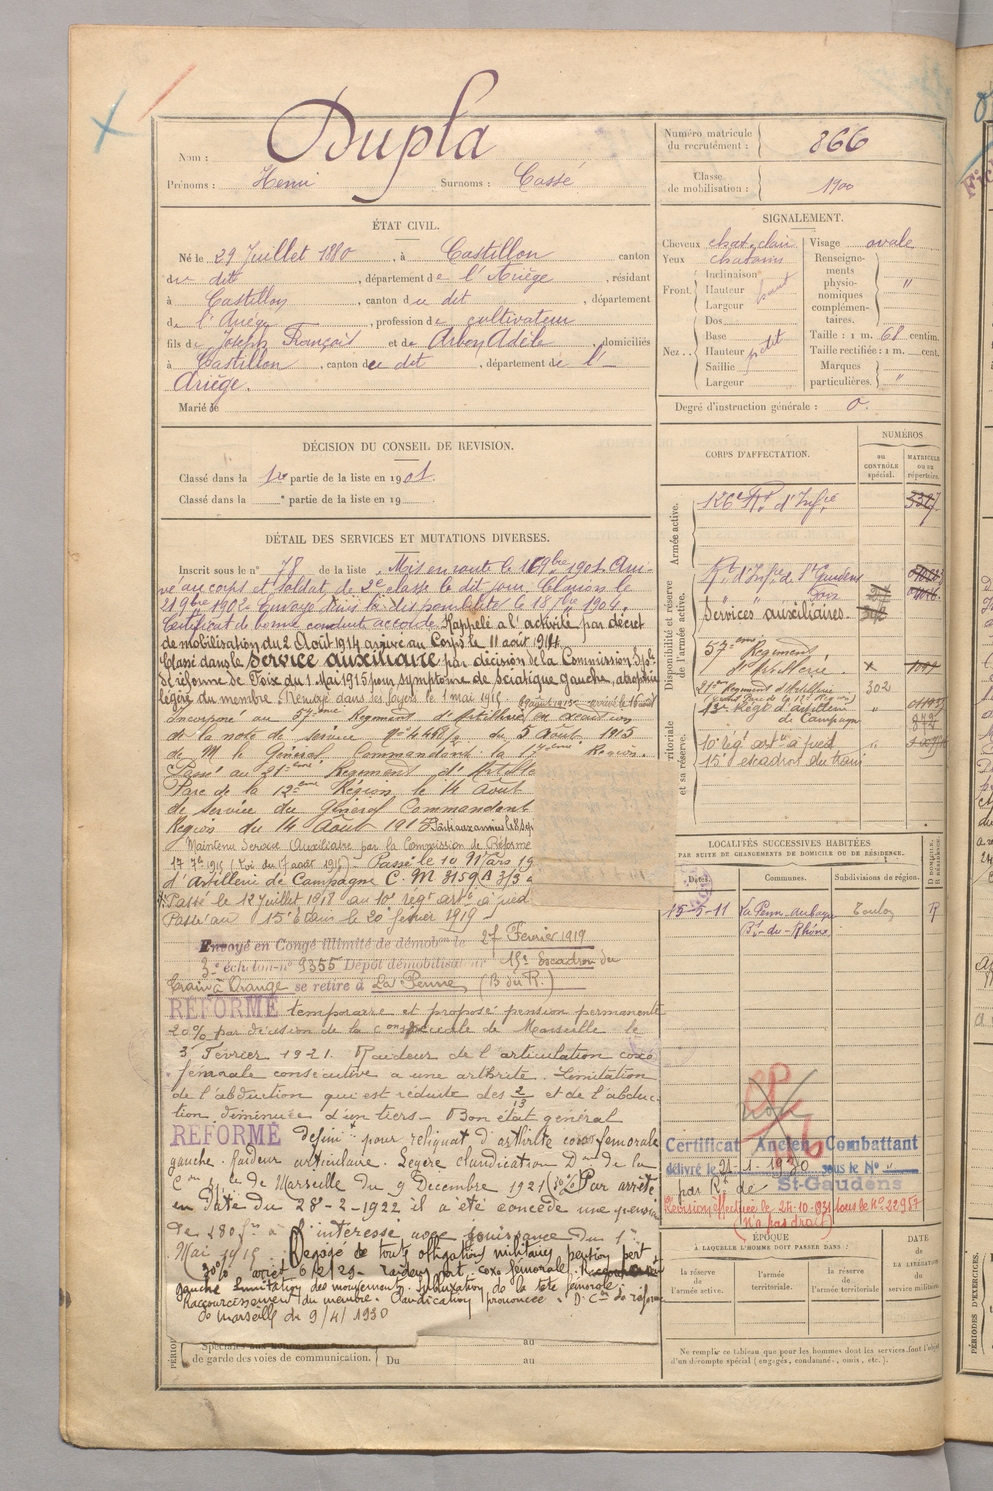 Nom : Dupla
Prénoms : Henri Surnoms : Cassé
Numéro matricule du recrutement : 866
Classe de mobilisation : 1900
ÉTAT CIVIL.
Né le 29 Juillet 1880, à Castillon canton
du dit, département de l'Ariège, résidant
à Castillon, canton du dit, département
de l'Ariège, profession de cultivateur
fils de Joseph François et de Arbon Adèle domiciliés
à Castillon, canton du dit, département de l'
Ariège.
Marié de
SIGNALEMENT.
Cheveux chat. clair Visage ovale
Yeux chatains
Front. Inclinaison
Hauteur haut
Largeur
Nez. Dos
Base
Hauteur petit
Saillie
Largeur
Renseignements physionomiques complémentaires. "
Taille : 1 m. 68 centim.
Taille rectifiée : 1 m. cent.
Marques particulières. "
Degré d'instruction générale : 0.
DÉCISION DU CONSEIL DE REVISION.
Classé dans la 1re partie de la liste en 1901.
Classé dans la e partie de la liste en 19
DÉTAIL DES SERVICES ET MUTATIONS DIVERSES.
Inscrit sous le n° 78 de la liste. Mis en route le 16 9bre 1901. Arri-
vé au corps et soldat de 2e classe le dit jour. Clairon le
21 9bre 1902. Envoyé dans la disponibilité le 18 7bre 1904.
Certificat de bonne conduite accordé. Rappelé à l'activité par décret
de mobilisation du 2 Août 1914 arrivé au Corps le 11 août 1914
Classé dans le Service auxiliaire par décision de la Commission Sple
de réforme de Foix du 1 Mai 1915 pour symptome de sciatique gauche, atrophie
légère du membre. Renvoyé dans ses foyers le 1 mai 1915.
Incorporé au 57eme Regiment d'Artillerie en execution
de la note de service du 5 Août 1915
de M le Général Commandant la 17eme Région.
Passé au 21eme Regiment d'Artille
Parc de la 12eme Région le 14 Août
de service du Général Commandant
Region du 14 Août 1915
Maintenu Service Auxiliaire par la Commission de Réforme
(Loi du 17 août 1915) - Passé le 10 Mars 19
d'Artillerie de Campagne C. M 3159
Passé le 12 Juillet 1918 au 10e régt artie à pied
Passé au 15e E. train le 20 février 1919
Envoyé en Congé illimité de démobon le 27 Fevrier 1919
3e échelon n° 9355 Dépôt démobilisateur 15e Escadron du
Train à Orange se retire à La Penne (B du R.)
RÉFORMÉ temporaire et proposé pension permanente
20% par décision de la con spéciale de Marseille le
3 Février 1921. Raideur de l'articulation coxo
femorale consecutive a une arthrite. Limitation
de l'abduction qui est réduite des 2/3 et de l'abduc-
tion diminuée d'un tiers - Bon état général
RÉFORMÉ définift pour reliquat d'arthrite coxo femorale
gauche. Raideur articulaire. Legere claudication Don de la
Con de Marseille du 9 Decembre 1921 Par arrêté
en date du 28-2-1922 il a été concédé une pension
de 280f à l'intéressé avec jouissance du 1er
Mai 1915. Dégagé de toute obligation militaire, pention pert
30% raideur art. coxo femorale
gauche limitation des mouvements. Subluxation de la tete femorale.
Raccourcissement du membre. Claudication prononcée. D. Con de réforme
de Marseille du 9/4/1930
PÉRIO
de garde des voies de communication. Du au
au
CORPS D'AFFECTATION.
NUMÉROS
au contrôle spécial.
matricule ou au répertoire.
Armée active.
126e Rt d'Infie
Disponibilité et réserve de l'armée active.
Rt d'Infie de St Gaudens
" " Foix
Services auxiliaires.
57eme Regiment
d'Artillerie
21eme Regiment d'Artillerie 302
13e Régt d'artillerie
de Campagne
10e régt artie à pied
15e escadron du train
LOCALITÉS SUCCESSIVES HABITÉES
PAR SUITE DE CHANGEMENTS DE DOMICILE OU DE RÉSIDENCE.
Dates. Communes. Subdivisions de région. D domicile, R résidence
15-5-11 La Penn-Aubagne Toulon R
Bs-du-Rhône
Certificat Ancien Combattant
délivré le 21-1-1930 sous le N° "
par Rt de St-Gaudens
Révision effectuée le 24-10-1931 sous le N° 22957
(N'a pas droit)
ÉPOQUE
À LAQUELLE L'HOMME DOIT PASSER DANS :
la réserve de l'armée active.
l'armée territoriale.
la réserve de l'armée territoriale
DATE de la LIBÉRATION du service militaire
Ne remplir ce tableau que pour les hommes dont les services font l'objet
d'un décompte spécial (engagés, condamnés, omis, etc.).